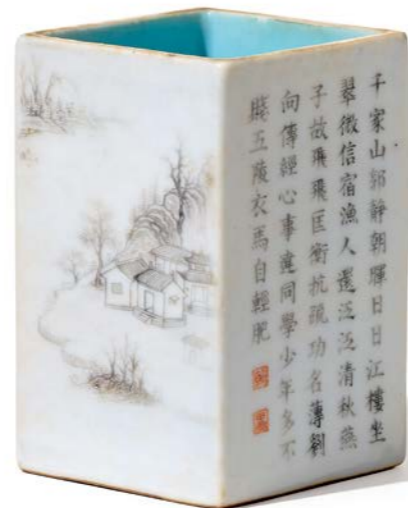 千家山郭靜朝暉日日江樓坐
翠微信宿漁人還泛泛清秋燕
子故飛飛匡衡抗疏功名薄劉
向傳經心事違同學少年多不
賤五陵衣馬自輕肥